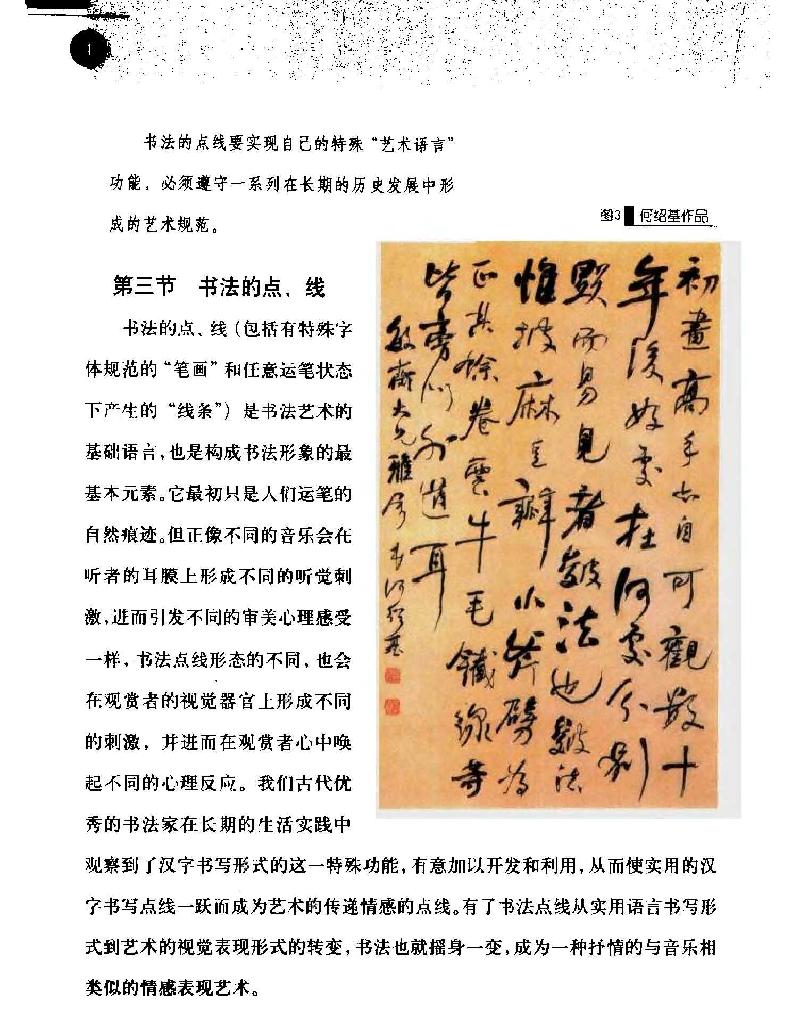 1
书法的点线要实现自己的特殊“艺术语言”
功能，必须遵守一系列在长期的历史发展中形
成的艺术规范。
图3 何绍基作品
第三节 书法的点、线
书法的点、线（包括有特殊字
体规范的“笔画”和任意运笔状态
下产生的“线条”）是书法艺术的
基础语言，也是构成书法形象的最
基本元素。它最初只是人们运笔的
自然痕迹。但正像不同的音乐会在
听者的耳膜上形成不同的听觉刺
激，进而引发不同的审美心理感受
一样，书法点线形态的不同，也会
在观赏者的视觉器官上形成不同
的刺激，并进而在观赏者心中唤
起不同的心理反应。我们古代优
秀的书法家在长期的生活实践中
观察到了汉字书写形式的这一特殊功能，有意加以开发和利用，从而使实用的汉
字书写点线一跃而成为艺术的传递情感的点线。有了书法点线从实用语言书写形
式到艺术的视觉表现形式的转变，书法也就摇身一变，成为一种抒情的与音乐相
类似的情感表现艺术。
初畫高手亦自可觀數十
年後好處在何處分別
顯而易見者皴法也皴法
惟披麻豆瓣小斧劈為
正其餘卷雲牛毛鐵線等
皆旁門外道耳